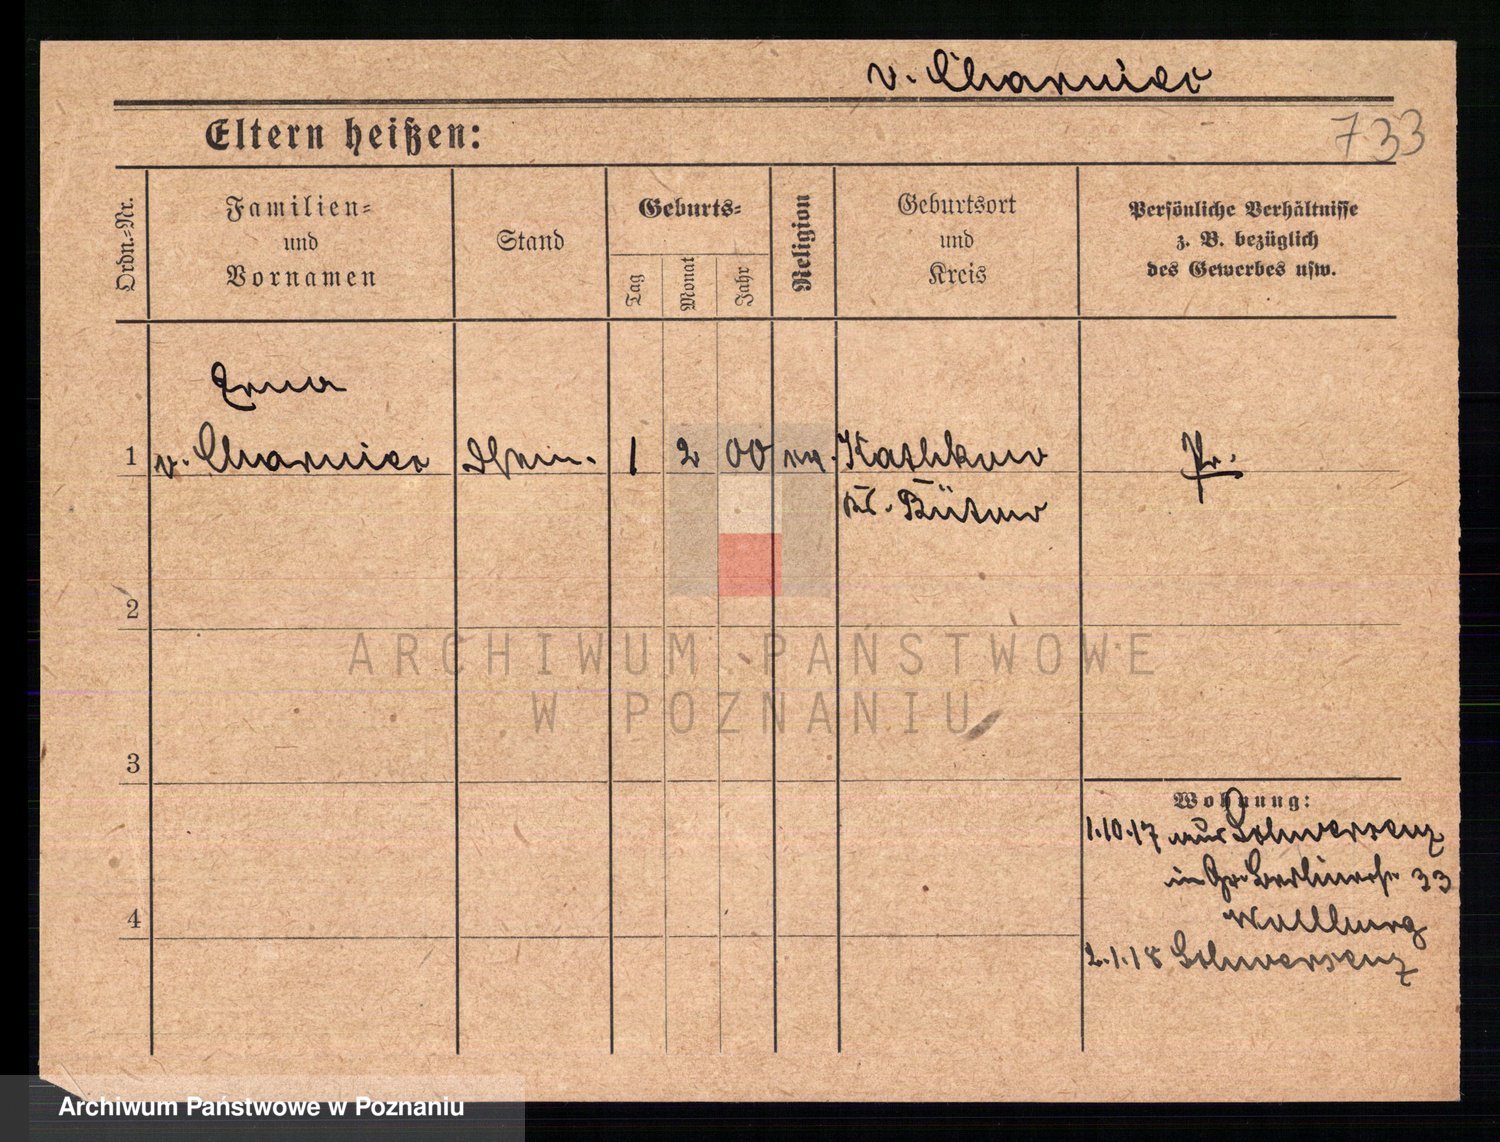 v. Charnier
Eltern heißen:
733
Ordn.-Nr.
Familien-
und
Vornamen
Stand
Geburts-
Tag
Monat
Jahr
Religion
Geburtsort
und
Kreis
Persönliche Verhältnisse
z. B. bezüglich
des Gewerbes usw.
Erna
1 v. Charnier 1 2 00 ev. Kathkow Pr.
Kr. Bütow
2
3
4
Wohnung:
1.10.17 aus Schwersenz
in Gr. Berlinerstr. 33
Wallburg
2.1.18 Schwersenz
ARCHIWUM PAŃSTWOWE
W POZNANIU
Archiwum Państwowe w Poznaniu